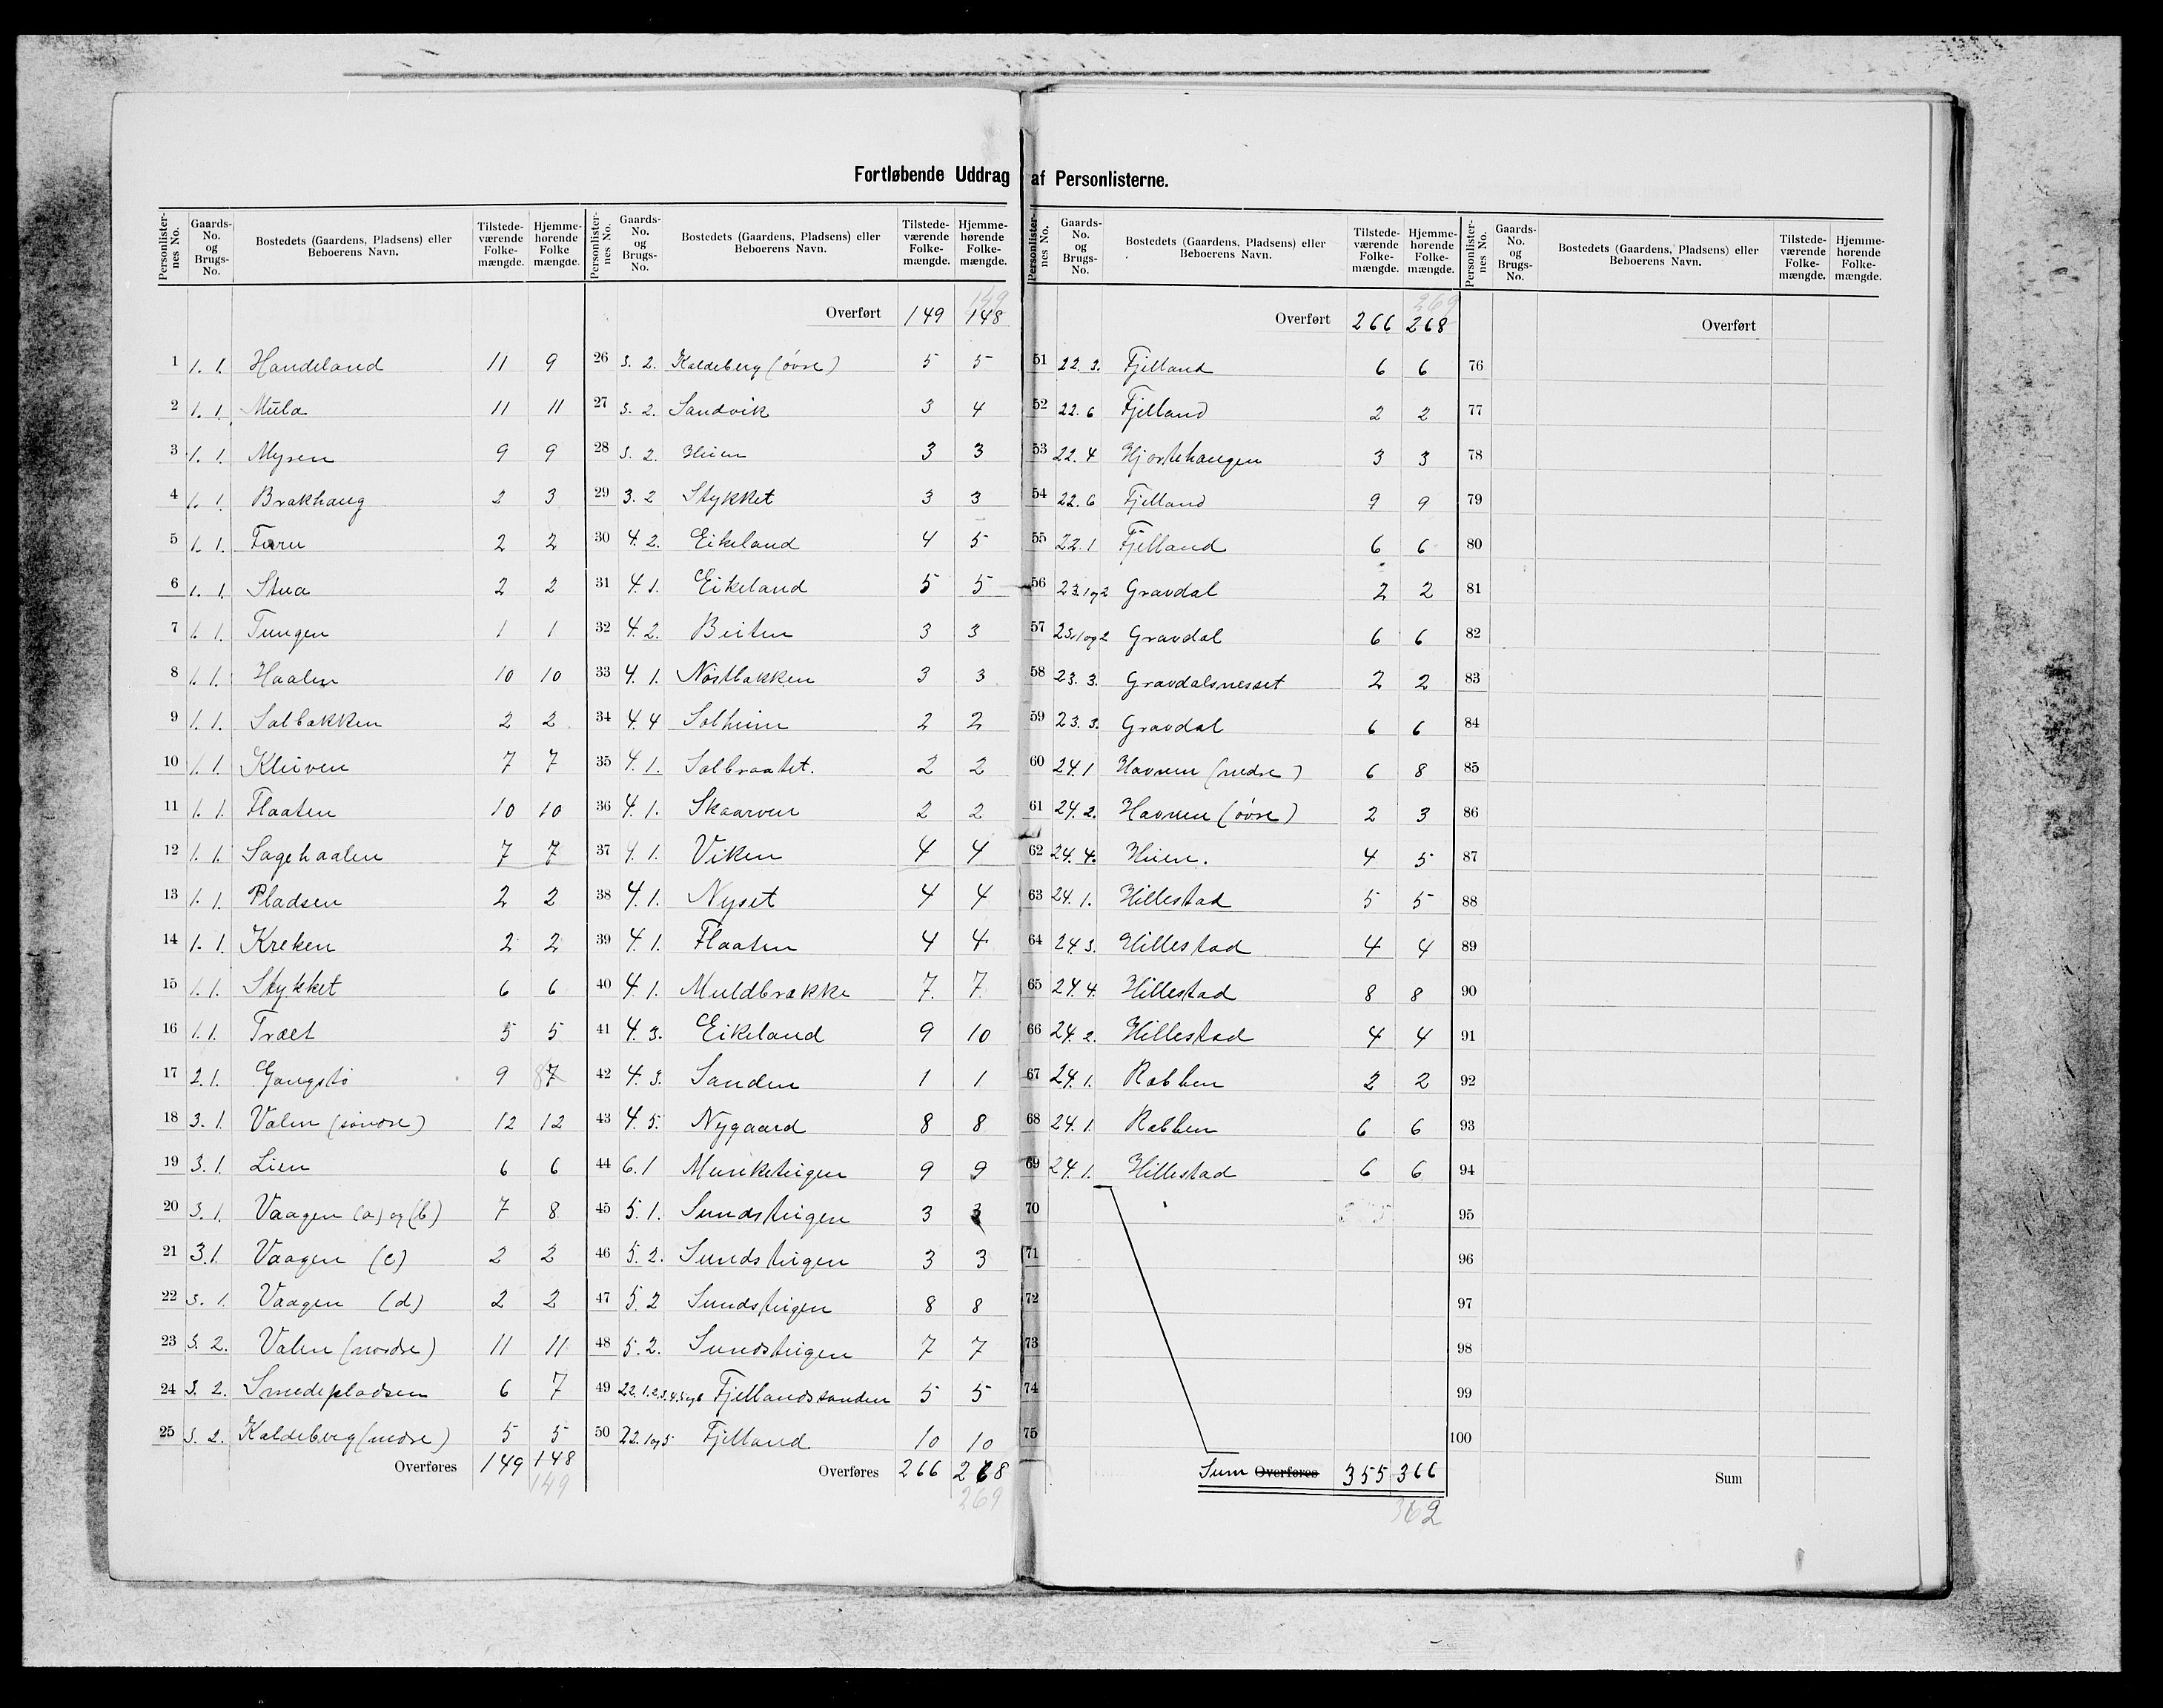 Fortløbende Uddrag af Personlisterne.
Personlisternes No. Gaards-No. og Brugs-No. Bostedets (Gaardens, Pladsens) eller Beboerens Navn. Tilstedeværende Folkemængde. Hjemmehørende Folkemængde.
1 1. 1. Handeland 11 9
2 1. 1. Mula 11 11
3 1. 1. Myren 9 9
4 1. 1. Brakhaug 2 3
5 1. 1. Furu 2 2
6 1. 1. Stua 2 2
7 1. 1. Tungen 1 1
8 1. 1. Haalen 10 10
9 1. 1. Solbakken 2 2
10 1. 1. Kleiven 7 7
11 1. 1. Flaaten 10 10
12 1. 1. Sagehaalen 7 7
13 1. 1. Pladsen 2 2
14 1. 1. Kreken 2 2
15 1. 1. Stykket 6 6
16 1. 1. Træet 5 5
17 2. 1. Gangstø 9 8 7
18 3. 1. Valen (søndre) 12 12
19 3. 1. Lien 6 6
20 3. 1. Vaagen (a) og (b) 7 8
21 3. 1. Vaagen (c) 2 2
22 3. 1. Vaagen (d) 2 2
23 3. 2. Valen (nordre) 11 11
24 3. 2. Smedepladsen 6 7
25 3. 2. Kaldeberg (nedre) 5 5
Overføres 149 148
149
Overført 149 148
149
26 3. 2. Kaldeberg (øvre) 5 5
27 3. 2. Sandvik 3 4
28 3. 2. Heien 3 3
29 3. 2 Stykket 3 3
30 4. 2. Eikeland 4 5
31 4. 1. Eikeland 5 5
32 4. 2. Beiten 3 3
33 4. 1. Nøstbakken 3 3
34 4. 4 Solheim 2 2
35 4. 1. Solbraatet. 2 2
36 4. 1. Skaarven 2 2
37 4. 1. Viken 4 4
38 4. 1. Nyset 4 4
39 4. 1. Flaaten 4 4
40 4. 1. Muldbrække 7. 7
41 4. 3. Eikeland 9 10
42 4. 3. Sanden 1 1
43 4. 5. Nygaard 8 8
44 6. 1 Munketeigen 9 9
45 5. 1. Sundsteigen 3 3
46 5. 2. Sundsteigen 3 3
47 5. 2 Sundsteigen 8 8
48 5. 2. Sundsteigen 7 7
49 22. 1. 2. 3. 4. 5 og 6 Fjellandssanden 5 5
50 22. 1 og 5 Fjelland 10 10
Overføres 266 268
269
Overført 266 268
269
51 22. 3. Fjelland 6 6
52 22. 6 Fjelland 2 2
53 22. 4 Hjortehaugen 3 3
54 22. 6 Fjelland 9 9
55 22. 1 Fjelland 6 6
56 23. 1 og 2 Gravdal 2 2
57 23. 1 og 2 Gravdal 6 6
58 23. 3. Gravdalsnesset 2 2
59 23. 3. Gravdal 6 6
60 24. 1 Havnen (nedre) 6 8
61 24. 2. Havnen (øvre) 2 3
62 24. 4. Heien. 4 5
63 24. 1. Hillestad 5 5
64 24 3. Hillestad 4 4
65 24. 4. Hillestad 8 8
66 24. 2. Hillestad 4 4
67 24. 1. Rabben 2 2
68 24. 1. Rabben 6 6
69 24. 1. Hillestad 6 6
70
71
72
73
74
75
Sum Overføres 355 366
362
Overført
76
77
78
79
80
81
82
83
84
85
86
87
88
89
90
91
92
93
94
95
96
97
98
99
100
Sum